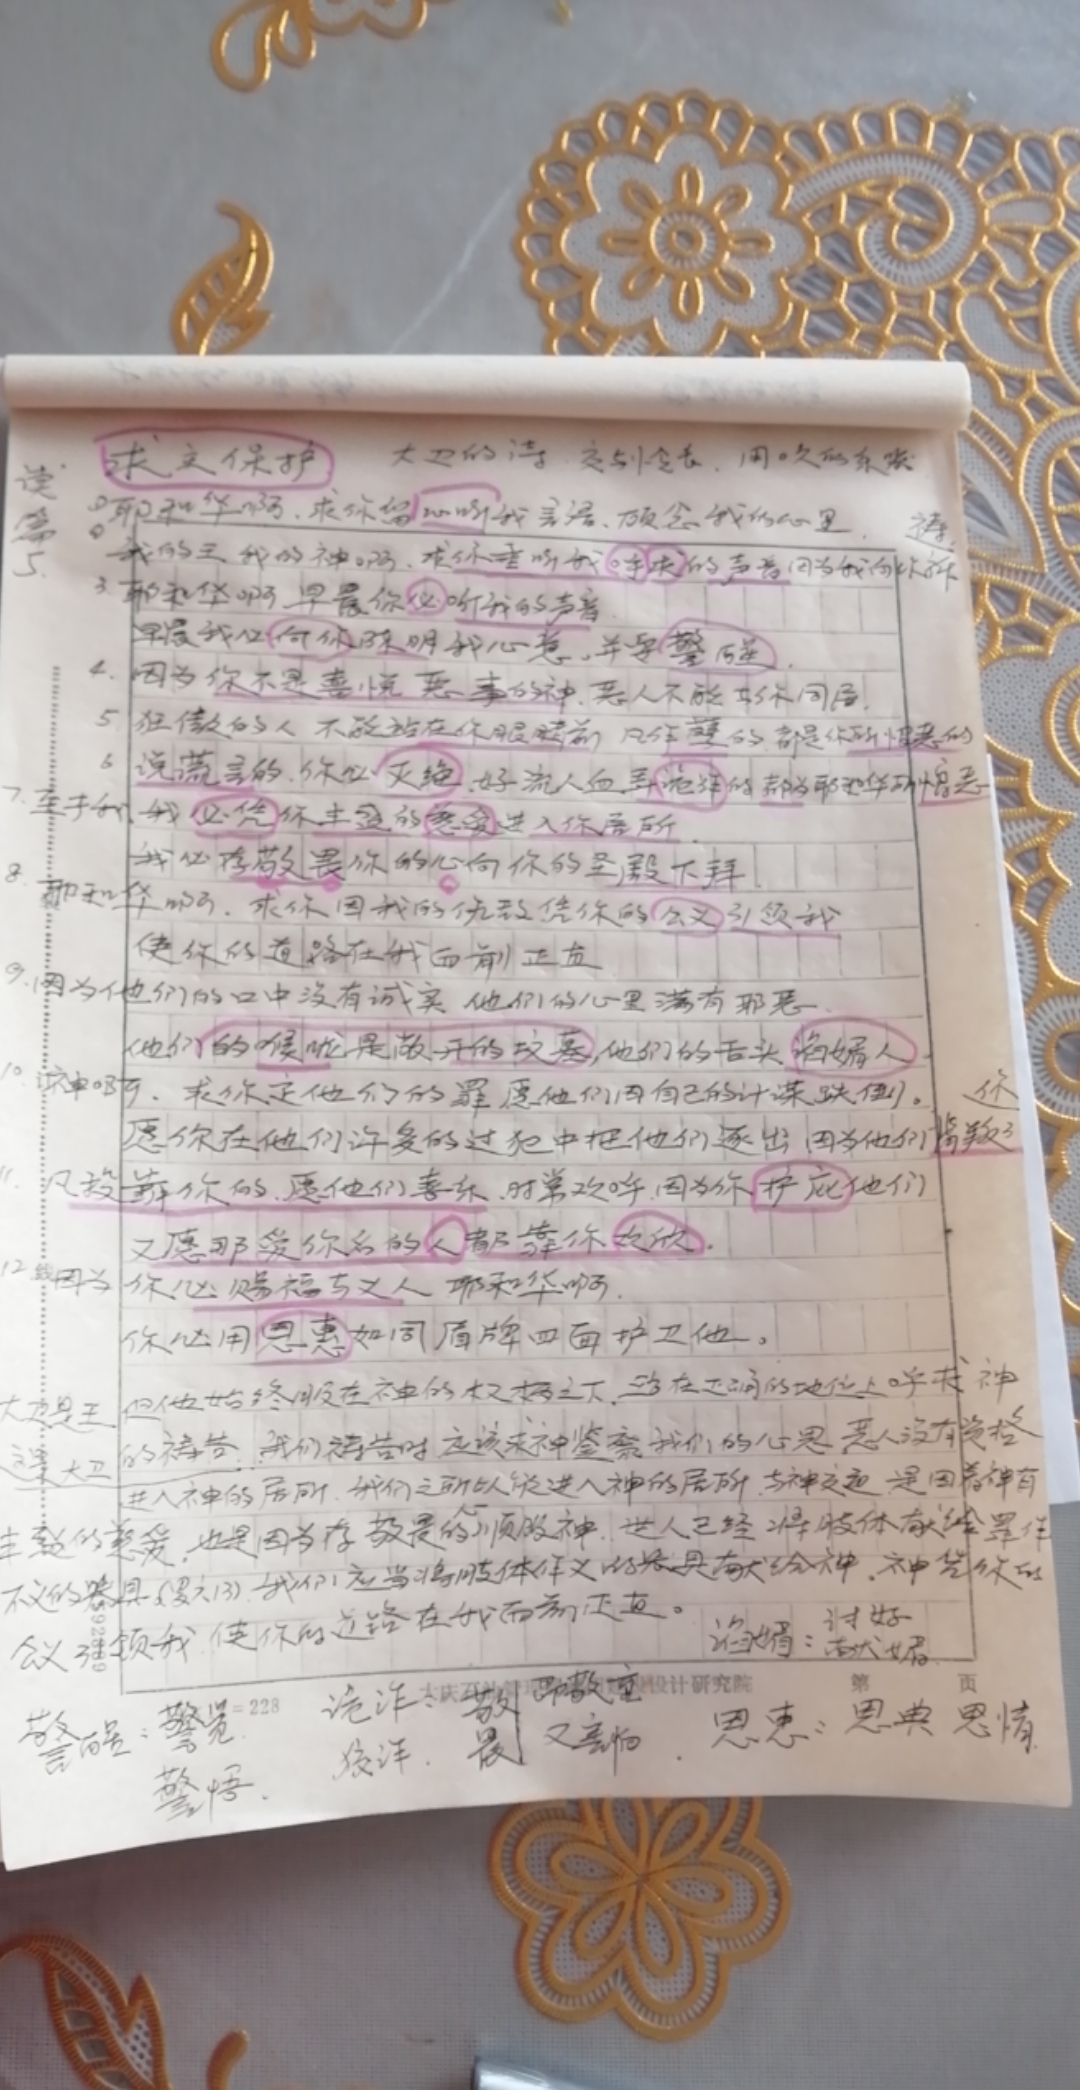 读篇5.
求主保护 大卫的诗 交与伶长 用吹的乐器
耶和华啊、求你留心听我言语、顾念我的心思
我的王我的神啊、求你垂听我呼求的声音因为我向你祈祷
3. 耶和华啊 早晨你必听我的声音
早晨我必向你陈明我心意、并要警醒.
4. 因为你不是喜悦恶事的神、恶人不能与你同居.
5. 狂傲的人 不能站在你眼睛前 凡作孽的都是你所恨恶的
6 说谎言的、你必灭绝、好流人血弄诡诈的都为耶和华所憎恶
7. 至于我、我必凭你丰盛的慈爱进入你居所
我必存敬畏你的心向你的圣殿下拜.
8. 耶和华啊、求你因我的仇敌凭你的公义引领我
使你的道路在我面前正直
9. 因为他们的口中没有诚实 他们的心里满有邪恶.
他们的喉咙是敞开的坟墓,他们的舌头谄媚人.
10. 神啊、求你定他们的罪 愿他们因自己的计谋跌倒。
愿你在他们许多的过犯中把他们逐出 因为他们背叛了你
11. 凡投靠你的、愿他们喜乐、时常欢呼、因为你护庇他们
又愿那爱你名的人都靠你欢欣.
12. 因为你必赐福与义人 耶和华啊.
你必用恩惠如同盾牌四面护卫他。
大卫是王 但他始终服在神的权柄之下、站在正确的地位上呼求神
这是大卫的祷告. 我们祷告时应该求神鉴察我们的心思 恶人没有资格
进入神的居所. 我们之所以能进入神的居所 与神交通 是因着神有
丰盛的慈爱, 也是因为存敬畏的心顺服神. 世人已经将肢体献给罪作
不义的器具(罗六13) 我们应当将肢体作义的器具献给神. 神凭你的
公义引领我 使你的道路在我面前正直。
谄媚: 讨好 献媚.
设计研究院 第 页
=228
警醒: 警觉 警悟.
诡诈: 狡诈.
敬畏 即敬重又害怕.
恩惠: 恩典 恩情.